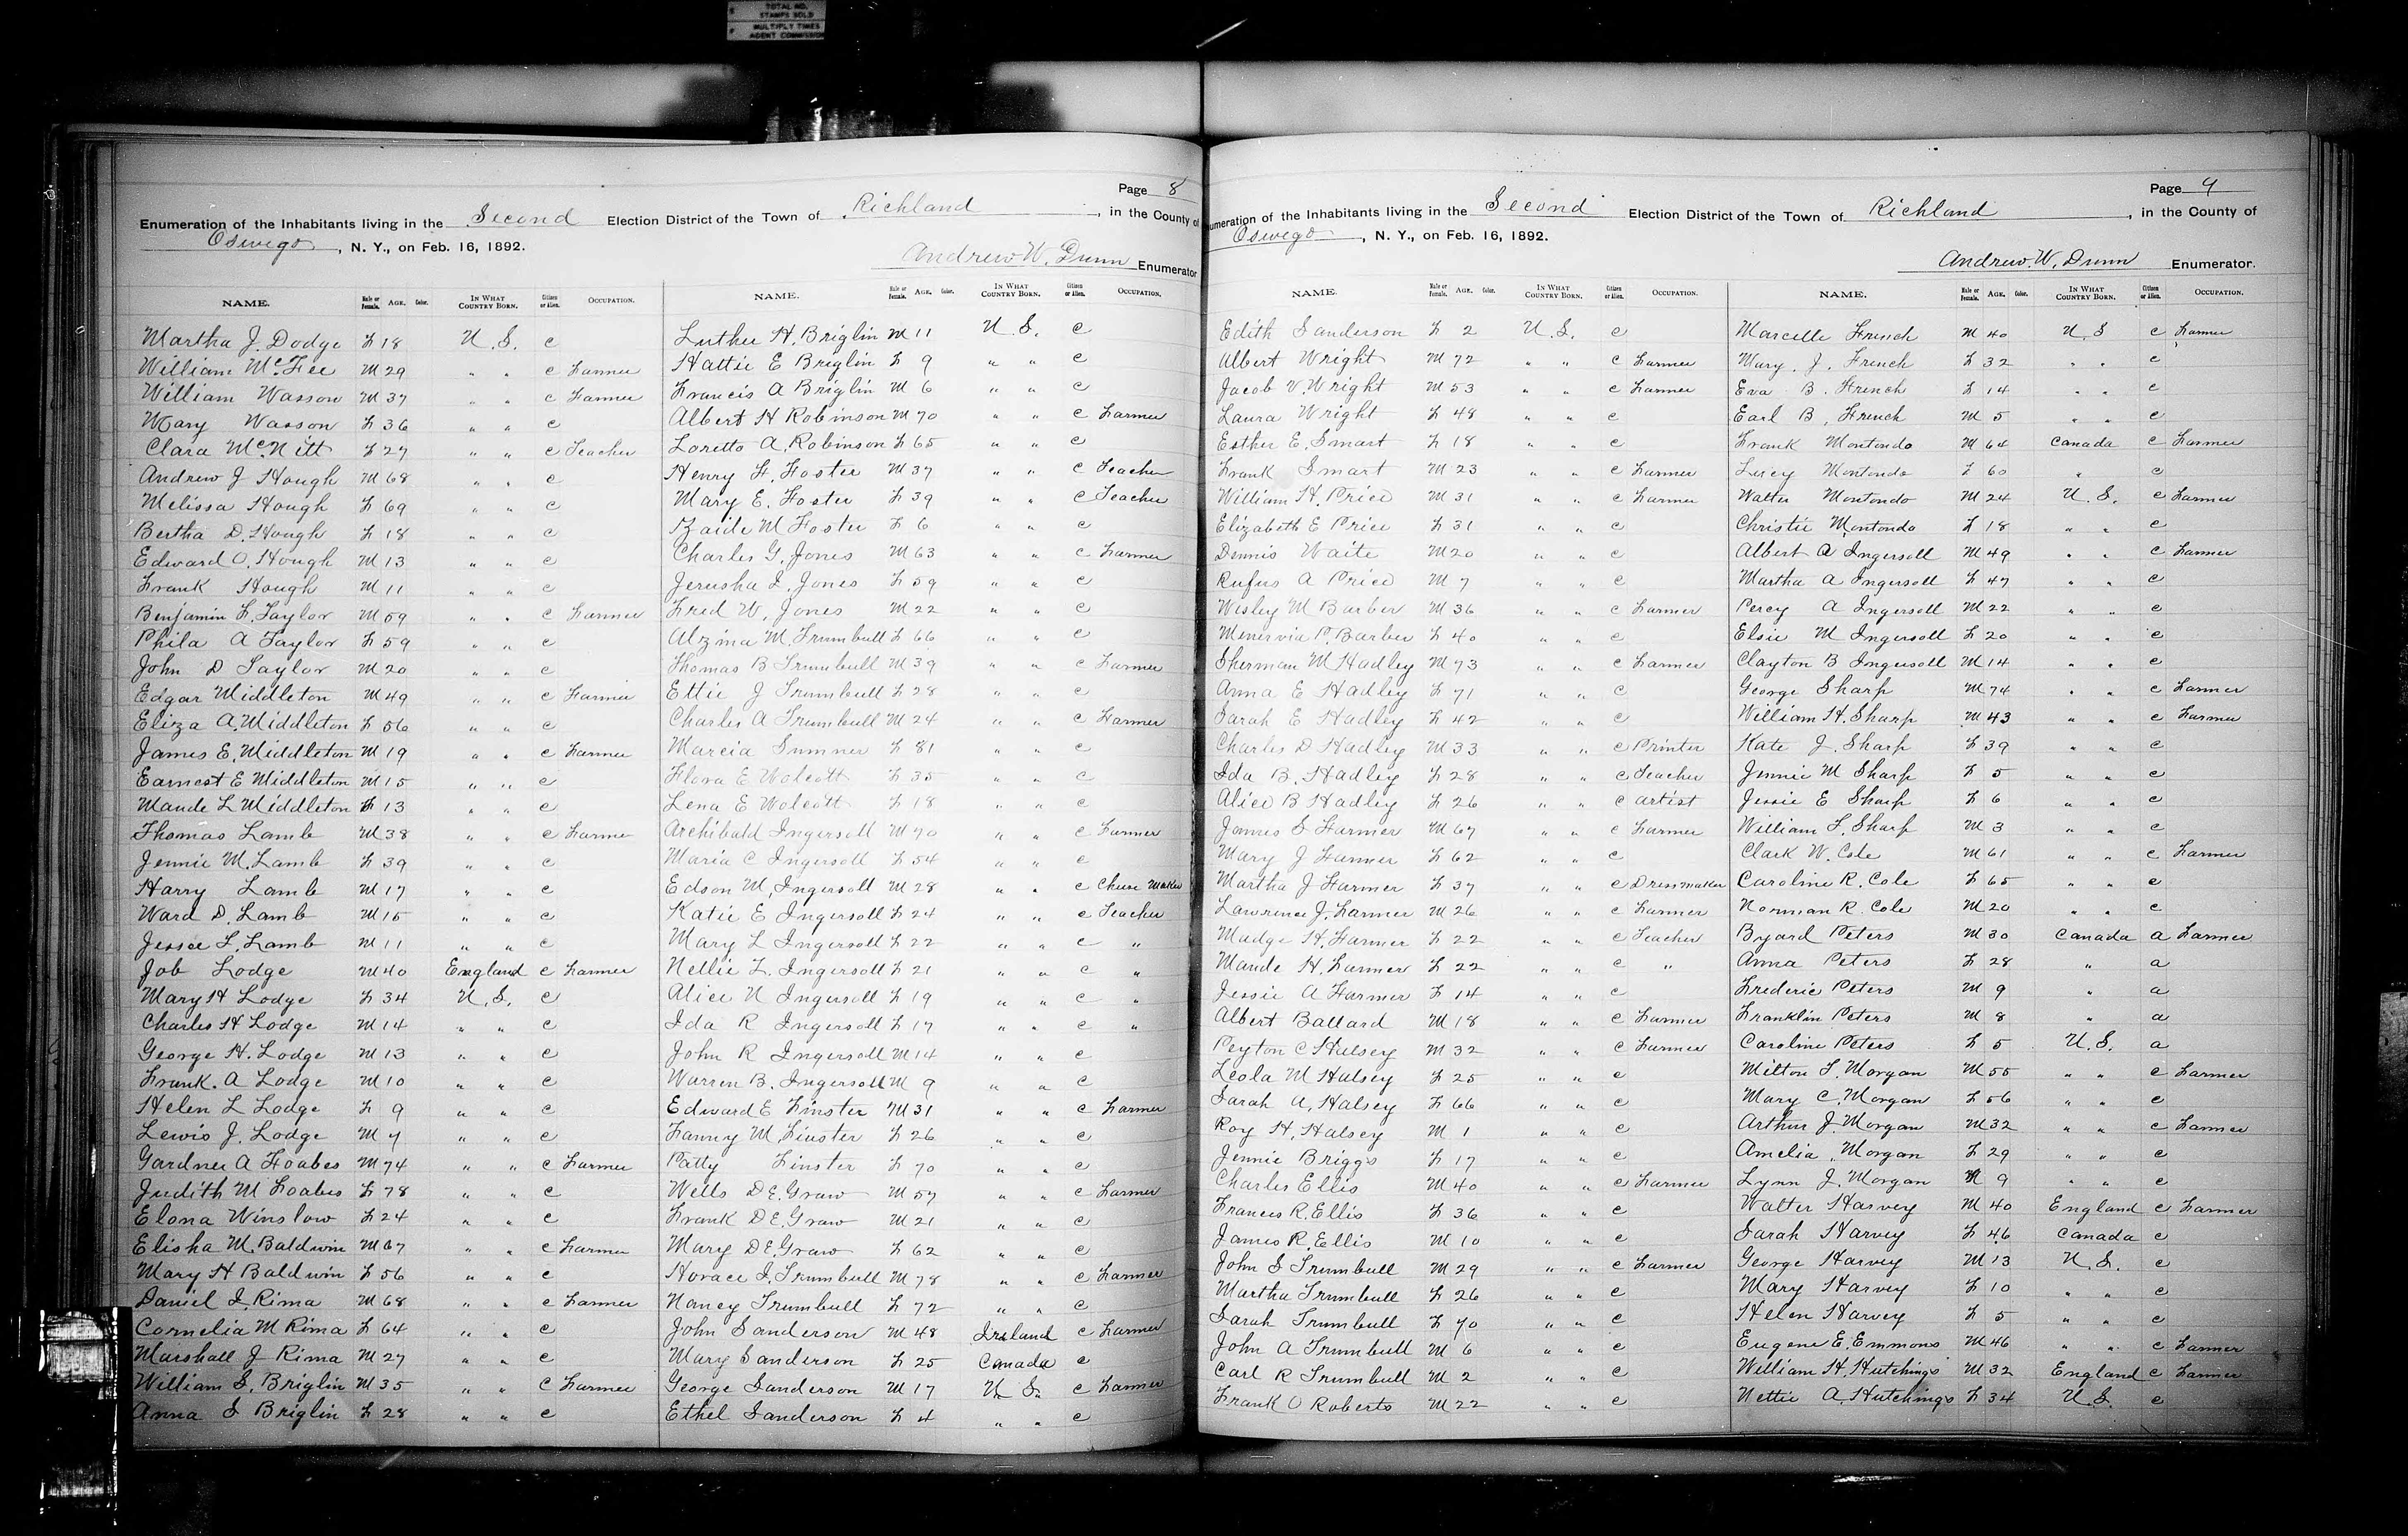 TOTAL NO.
STAMPS SOLD
MULTIPLY TIMES
AGENT COMMISSION
Page 8
Enumeration of the Inhabitants living in the Second Election District of the Town of Richland, in the County of
Oswego, N. Y., on Feb. 16, 1892.
Andrew W. Dunn Enumerator
NAME. Male or Female. AGE. Color. IN WHAT COUNTRY BORN. Citizen or Alien. OCCUPATION.
Martha J. Dodge F 18 U.S. c
William McFee M 29 " " c Farmer
William Wasson M 37 " " c Farmer
Mary Wasson F 36 " " c
Clara McNitt F 27 " " c Teacher
Andrew J Hough M 68 " " c
Melissa Hough F 69 " " c
Bertha D. Hough F 18 " " c
Edward O. Hough M 13 " " c
Frank Hough M 11 " " c
Benjamin F. Taylor M 59 " " c Farmer
Phila A Taylor F 59 " " c
John D Taylor M 20 " " c
Edgar Middleton M 49 " " c Farmer
Eliza A. Middleton F 56 " " c
James E. Middleton M 19 " " c Farmer
Earnest E Middleton M 15 " " c
Maude L Middleton F 13 " " c
Thomas Lamb M 38 " " c Farmer
Jennie M. Lamb F 39 " " c
Harry Lamb M 17 " " c
Ward D. Lamb M 15 " " c
Jessee T. Lamb M 11 " " c
Job Lodge M 40 England c Farmer
Mary H Lodge F 34 U.S. c
Charles H Lodge M 14 " " c
George H. Lodge M 13 " " c
Frank. A Lodge M 10 " " c
Helen L Lodge F 9 " " c
Lewis J. Lodge M 4 " " c
Gardner A Foabes M 74 " " c Farmer
Judith M Foabes F 78 " " c
Elona Winslow F 24 " " c
Elisha M. Baldwin M 67 " " c Farmer
Mary H Baldwin F 56 " " c
Daniel I. Rima M 68 " " c Farmer
Cornelia M Rima F 64 " " c
Marshall J Rima M 27 " " c
William S. Briglin M 35 " " c Farmer
Anna S Briglin F 28 " " c
NAME. Male or Female. AGE. Color. IN WHAT COUNTRY BORN. Citizen or Alien. OCCUPATION.
Luther H. Briglin M 11 U.S. c
Hattie E Briglin F 9 " " c
Francis A Briglin M 6 " " c
Albert H Robinson M 70 " " c Farmer
Loretto A. Robinson F 65 " " c
Henry H. Foster M 37 " " c Teacher
Mary E. Foster F 39 " " c Teacher
Zaide M Foster F 6 " " c
Charles G. Jones M 63 " " c Farmer
Jerusha I. Jones F 59 " " c
Fred W. Jones M 22 " " c
Alzina M. Trumbull F 66 " " c
Thomas B Trumbull M 39 " " c Farmer
Ettie J Trumbull F 28 " " c
Charles A Trumbull M 24 " " c Farmer
Marcia Sumner F 81 " " c
Flora E Wolcott F 35 " " c
Lena E Wolcott F 18 " " c
Archibald Ingersoll M 70 " " c Farmer
Maria C Ingersoll F 54 " " c
Edson M. Ingersoll M 28 " " c Cheese Maker
Katie E Ingersoll F 24 " " c Teacher
Mary L Ingersoll F 22 " " c "
Nellie L. Ingersoll F 21 " " c "
Alice N Ingersoll F 19 " " c "
Ida R Ingersoll F 17 " " c "
John R Ingersoll M 14 " " c
Warren B. Ingersoll M 9 " " c
Edward E Finster M 31 " " c Farmer
Fanny M Finster F 26 " " c
Patty Finster F 70 " " c
Wells DE. Graw M 57 " " c Farmer
Frank DE. Graw M 21 " " c
Mary DE. Graw F 62 " " c
Horace I. Trumbull M 78 " " c Farmer
Nancy Trumbull F 72 " " c
John Sanderson M 48 Ireland c Farmer
Mary Sanderson F 25 Canada c
George Sanderson M 17 U.S. c Farmer
Ethel Sanderson F 4 " " c
Page 9
Enumeration of the Inhabitants living in the Second Election District of the Town of Richland, in the County of
Oswego, N. Y., on Feb. 16, 1892.
Andrew. W. Dunn Enumerator.
NAME. Male or Female. AGE. Color. IN WHAT COUNTRY BORN. Citizen or Alien. OCCUPATION.
Edith Sanderson F 2 U.S. c
Albert Wright M 72 " " c Farmer
Jacob V. Wright M 53 " " c Farmer
Laura Wright F 48 " " c
Esther E. Smart F 18 " " c
Frank Smart M 23 " " c Farmer
William H. Price M 31 " " c Farmer
Elizabeth E Price F 31 " " c
Dennis Waite M 20 " " c
Rufus A Price M 7 " " c
Wesley M Barber M 36 " " c Farmer
Menervia P. Barber F 40 " " c
Sherman M Hadley M 73 " " c Farmer
Anna E Hadley F 71 " " c
Sarah E Hadley F 42 " " c
Charles D Hadley M 33 " " c Printer
Ida B. Hadley F 28 " " c Teacher
Alice B Hadley F 26 " " c artist
James S Farmer M 67 " " c Farmer
Mary J Farmer F 62 " " c
Martha J Farmer F 37 " " c Dressmaker
Lawrence J. Farmer M 26 " " c Farmer
Madge H. Farmer F 22 " " c Teacher
Maude H. Farmer F 22 " " c "
Jessie A Farmer F 14 " " c
Albert Ballard M 18 " " c Farmer
Peyton C Halsey M 32 " " c Farmer
Leola M Halsey F 25 " " c
Sarah A. Halsey F 66 " " c
Roy H. Halsey M 1 " " c
Jennie Briggs F 17 " " c
Charles Ellis M 40 " " c Farmer
Frances R. Ellis F 36 " " c
James R. Ellis M 10 " " c
John S Trumbull M 29 " " c Farmer
Martha Trumbull F 26 " " c
Sarah Trumbull F 70 " " c
John A Trumbull M 6 " " c
Carl R Trumbull M 2 " " c
Frank O Roberts M 22 " " c
NAME. Male or Female. AGE. Color. IN WHAT COUNTRY BORN. Citizen or Alien. OCCUPATION.
Marcelle French M 40 U.S c Farmer
Mary. J. French F 32 " " c
Eva B. French F 14 " " c
Earl B. French M 5 " " c
Frank Montondo M 64 Canada c Farmer
Lucy Montondo F 60 " c
Walter Montondo M 24 U.S. c Farmer
Christie Montondo F 18 " " c
Albert A Ingersoll M 49 " " c Farmer
Martha A Ingersoll F 47 " " c
Percy A Ingersoll M 22 " " c
Elsie M Ingersoll F 20 " " c
Clayton B Ingersoll M 14 " " c
George Sharp M 74 " " c Farmer
William H. Sharp M 43 " " c Farmer
Kate J. Sharp F 39 " " c
Jennie M Sharp F 5 " " c
Jessie E Sharp F 6 " " c
William F. Sharp M 3 " " c
Clark W. Cole M 61 " " c Farmer
Caroline R. Cole F 65 " " c
Norman R. Cole M 20 " " c
Byard Peters M 30 Canada a Farmer
Anna Peters F 28 " a
Frederic Peters M 9 " a
Franklin Peters M 8 " a
Caroline Peters F 5 U.S. a
Milton T. Morgan M 55 " " c Farmer
Mary C. Morgan F 56 " " c
Arthur J. Morgan M 32 " " c Farmer
Amelia Morgan F 29 " " c
Lynn J. Morgan M 9 " " c
Walter Harvey M 40 England c Farmer
Sarah Harvey F 46 Canada c
George Harvey M 13 U.S. c
Mary Harvey F 10 " " c
Helen Harvey F 5 " " c
Eugene E. Emmons M 46 " " c Farmer
William H. Hutchings M 32 England c Farmer
Nettie A. Hutchings F 34 U.S. c